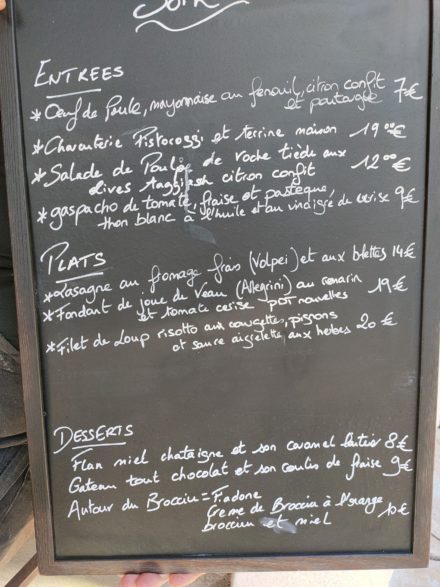 Soir
ENTREES
* Oeuf de Poule, mayonnaise au fenouil, citron confit 7€
et poutargue
* Charcuterie Pistorozzi et terrine maison 19°°€
* Salade de Poulpe de roche tiède aux 12°°€
olives taggiash citron confit
* gaspacho de tomate, fraise et pastèque,
thon blanc à l'huile et au vinaigre de cerise 9€
PLATS
* Lasagne au fromage frais (Volpei) et aux blettes 14€
* Fondant de joue de Veau (Allegrini) au romarin 19€
et tomate cerise pot navelles
* Filet de Loup risotto aux courgettes, pignons
et sauce aigrelette aux herbes 20€
DESSERTS
Flan miel chataigne et son caramel 8€
Gateau tout chocolat et son coulis de fraise 9€
Autour du Brocciu = Fiadone
Creme de Brocciu à l'orange 10€
brocciu et miel